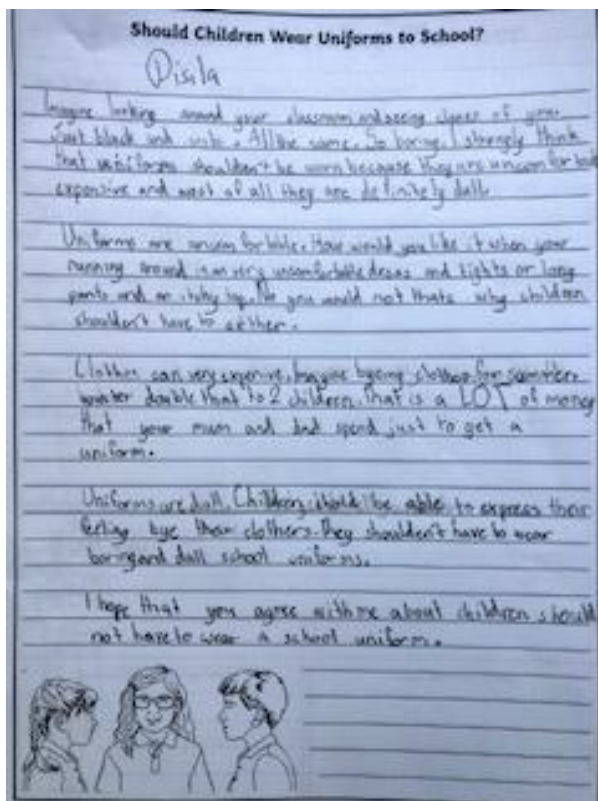 Should Children Wear Uniforms to School?
Disila
Imagine looking around your classroom and seeing of you.
Just black and . All the same. So boring. I strongly think
that shouldn't be worn because they are uncomfortable
expensive and most of all they are definitely dull.
Uniforms are . How would you like it when your
running around in an very uncomfortable dress and tights or long
pants and an itchy top. No you would not thats why children
shouldn't have to either.
Clothes can very expensive. Imagine byeing clothes for
double that to 2 children. That is a LOT of money
that your mum and dad spend just to get a
uniform.
Uniforms are dull. Children should be able to express their
feeling bye their clothers. They shouldn't have to wear
boring and dull school uniforms.
I hope that you agree with me about children should
not have to wear a school uniform.